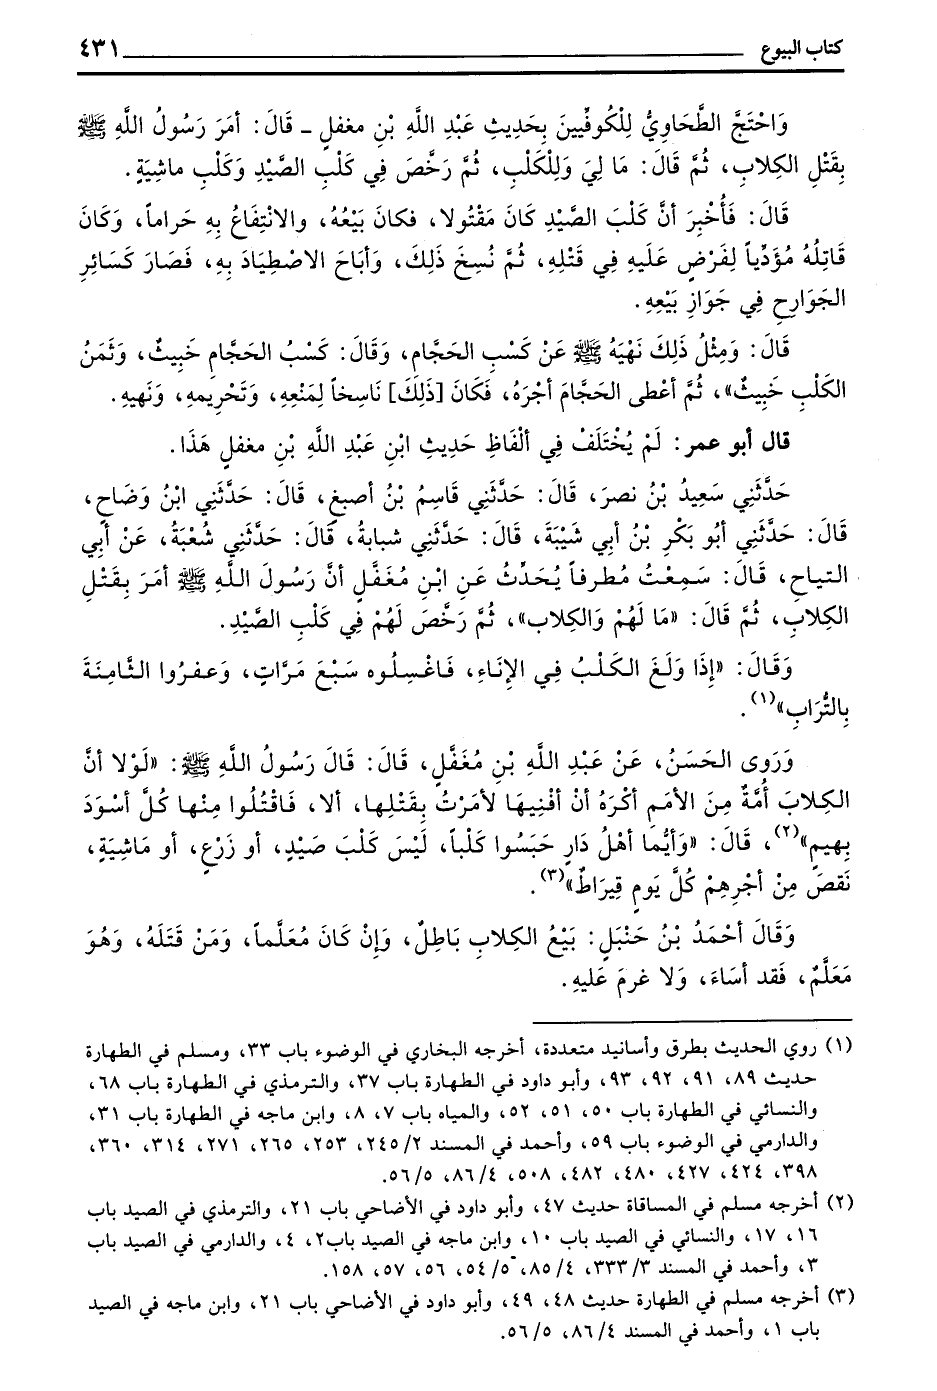 كتاب البيوع ٤٣١
وَاحْتَجَّ الطَّحَاوِيُّ لِلْكُوفِّيينَ بِحَدِيثِ عَبْدِ اللَّهِ بْنِ مغفلٍ ـ قَالَ: أمَرَ رَسُولُ اللَّهِ ﷺ
بِقَتْلِ الكِلَابِ، ثُمَّ قَالَ: مَا لِيَ وَلِلْكَلْبِ، ثُمَّ رَخَّصَ فِي كَلْبِ الصَّيْدِ وَكَلْبِ ماشيَةٍ.
قَالَ: فَأُخْبِرَ أنَّ كَلْبَ الصَّيْدِ كَانَ مَقْتُولا، فكانَ بَيْعُهُ، والانْتِفَاعُ بِهِ حَراماً، وَكَانَ
قَاتِلُهُ مُؤَدِّياً لِفَرْضٍ عَلَيهِ فِي قَتْلِهِ، ثُمَّ نُسِخَ ذَلِكَ، وَأبَاحَ الاصْطِيَادَ بِهِ، فَصَارَ كَسَائِرِ
الجَوَارِحِ فِي جَوَازِ بَيْعِهِ.
قَالَ: وَمِثْلُ ذَلِكَ نَهْيَهُ ﷺ عَنْ كَسْبِ الحَجَّامِ، وَقَالَ: كَسْبُ الحَجَّامِ خَبِيثٌ، وَثَمَنُ
الكَلْبِ خَبِيثٌ»، ثُمَّ أعْطى الحَجَّامَ أجْرَهُ، فَكَانَ [ذَلِكَ] نَاسِخاً لِمَنْعِهِ، وَتَحْرِيمهِ، وَنَهيهِ.
قال أبو عمر: لَمْ يُخْتَلَفْ فِي ألْفَاظِ حَدِيثِ ابْنِ عَبْدِ اللَّهِ بْنِ مغفلٍ هَذَا.
حَدَّثَنِي سَعِيدُ بْنُ نصرَ، قَالَ: حَدَّثَنِي قَاسِمُ بْنُ أصبغٍ، قَالَ: حَدَّثَنِي ابْنُ وَضَاحٍ،
قَالَ: حَدَّثَنِي أبُو بَكْرِ بْنُ أبِي شَيْبَةَ، قَالَ: حَدَّثَنِي شبابةُ، قَالَ: حَدَّثَنِي شُعْبَةُ، عَنْ أبِي
التياحِ، قَالَ: سَمِعْتُ مُطرفاً يُحَدِّثُ عَنِ ابْنِ مُغَفَّلٍ أنَّ رَسُولَ اللَّهِ ﷺ أمَرَ بِقَتْلِ
الكِلَابِ، ثُمَّ قَالَ: «مَا لَهُمْ وَالكِلاب»، ثُمَّ رَخَّصَ لَهُمْ فِي كَلْبِ الصَّيْدِ.
وَقَالَ: «إِذَا وَلَغَ الكَلْبُ فِي الإِنَاءِ، فَاغْسِلُوه سَبْعَ مَرَّاتٍ، وَعفرُوا الثَّامِنَةَ
بِالتُّرَابِ»(١).
وَرَوى الحَسَنُ، عَنْ عَبْدِ اللَّهِ بْنِ مُغَفَّلٍ، قَالَ: قَالَ رَسُولُ اللَّهِ ﷺ: «لَوْلا أنَّ
الكِلابَ أُمَّةٌ مِنَ الأمَمِ أكْرَهُ أنْ أفْنِيهَا لأمَرْتُ بِقَتْلِها، ألا، فَاقْتُلُوا مِنْها كُلَّ أسْوَدَ
بِهِيمٍ»(٢)، قَالَ: «وَأيُّمَا أهْلُ دَارٍ حَبَسُوا كَلْباً، لَيْسَ كَلْبَ صَيْدٍ، أو زَرْعٍ، أو مَاشِيَةٍ،
نَقصَ مِنْ أجْرِهِمْ كُلَّ يَومٍ قِيرَاطٌ»(٣).
وَقَالَ أحْمَدُ بْنُ حَنْبَلٍ: بَيْعُ الكِلابِ بَاطِلٌ، وَإِنْ كَانَ مُعَلَّماً، وَمَنْ قَتَلَهُ، وَهُوَ
مَعَلَّمٌ، فَقد أسَاءَ، وَلا غرمَ عَليهِ.
(١) روي الحديث بطرق وأسانيد متعددة، أخرجه البخاري في الوضوء باب ٣٣، ومسلم في الطهارة
حديث ٨٩، ٩١، ٩٢، ٩٣، وأبو داود في الطهارة باب ٣٧، والترمذي في الطهارة باب ٦٨،
والنسائي في الطهارة باب ٥٠، ٥١، ٥٢، والمياه باب ٧، ٨، وابن ماجه في الطهارة باب ٣١،
والدارمي في الوضوء باب ٥٩، وأحمد في المسند ٢/ ٢٤٥، ٢٥٣، ٢٦٥، ٢٧١، ٣١٤، ٣٦٠،
٣٩٨، ٤٢٤، ٤٢٧، ٤٨٠، ٤٨٢، ٥٠٨، ٤/ ٨٦، ٥/ ٥٦.
(٢) أخرجه مسلم في المساقاة حديث ٤٧، وأبو داود في الأضاحي باب ٢١، والترمذي في الصيد باب
١٦، ١٧، والنسائي في الصيد باب ١٠، وابن ماجه في الصيد باب٢، ٤، والدارمي في الصيد باب
٣، وأحمد في المسند ٣/ ٣٣٣، ٤/ ٨٥، ٥/ ٥٤، ٥٦، ٥٧، ١٥٨.
(٣) أخرجه مسلم في الطهارة حديث ٤٨، ٤٩، وأبو داود في الأضاحي باب ٢١، وابن ماجه في الصيد
باب ١، وأحمد في المسند ٤/ ٨٦، ٥/ ٥٦.